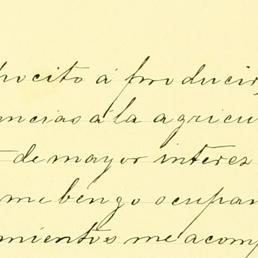 pocito á producir
encias á la agricu
de mayor interes
me bengo ocupan
mientos me acomp